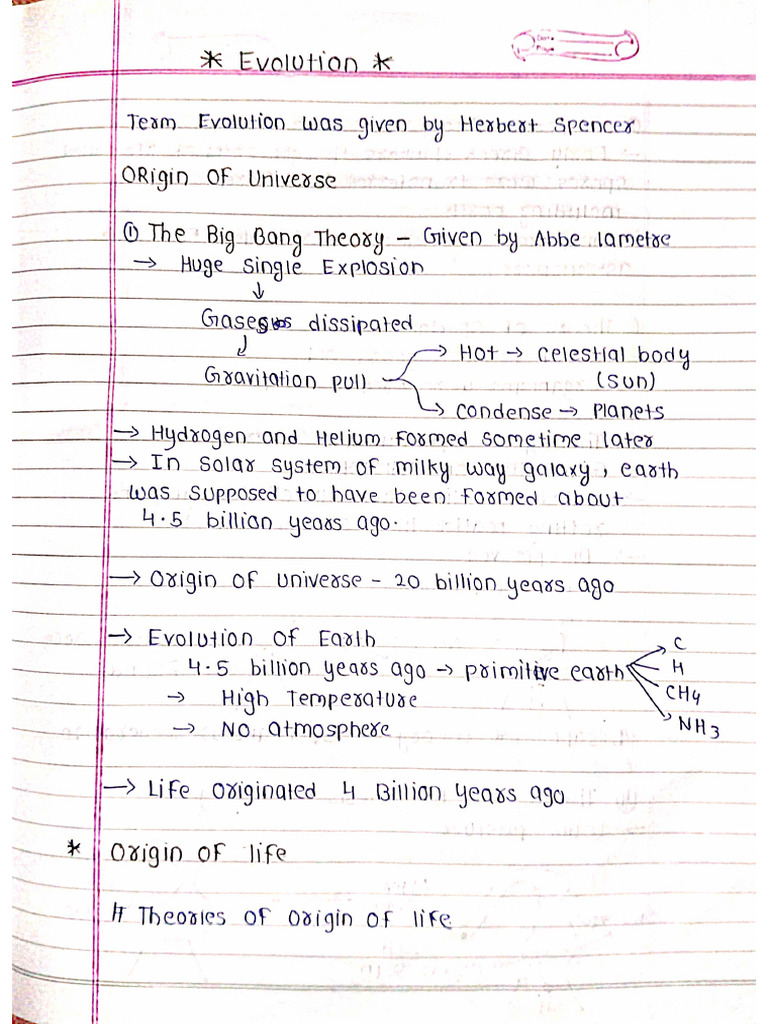 * Evolution *
Term Evolution was given by Herbert Spencer
ORigin OF Universe
① The Big Bang Theory – Given by Abbe lametre
→ Huge Single Explosion
↓
Gaseous dissipated
↓
→ Hot → celestial body
Gravitation pull (sun)
→ condense → Planets
→ Hydrogen and Helium formed sometime later
→ In solar system of milky way galaxy, earth
was supposed to have been formed about
4.5 billion years ago.
→ Origin of universe – 20 billion years ago
→ Evolution of Earth
C
4.5 billion years ago → primitive earth H
→ High Temperature CH4
→ No atmosphere NH3
→ Life originated 4 Billion years ago
* Origin of life
# Theories of origin of life